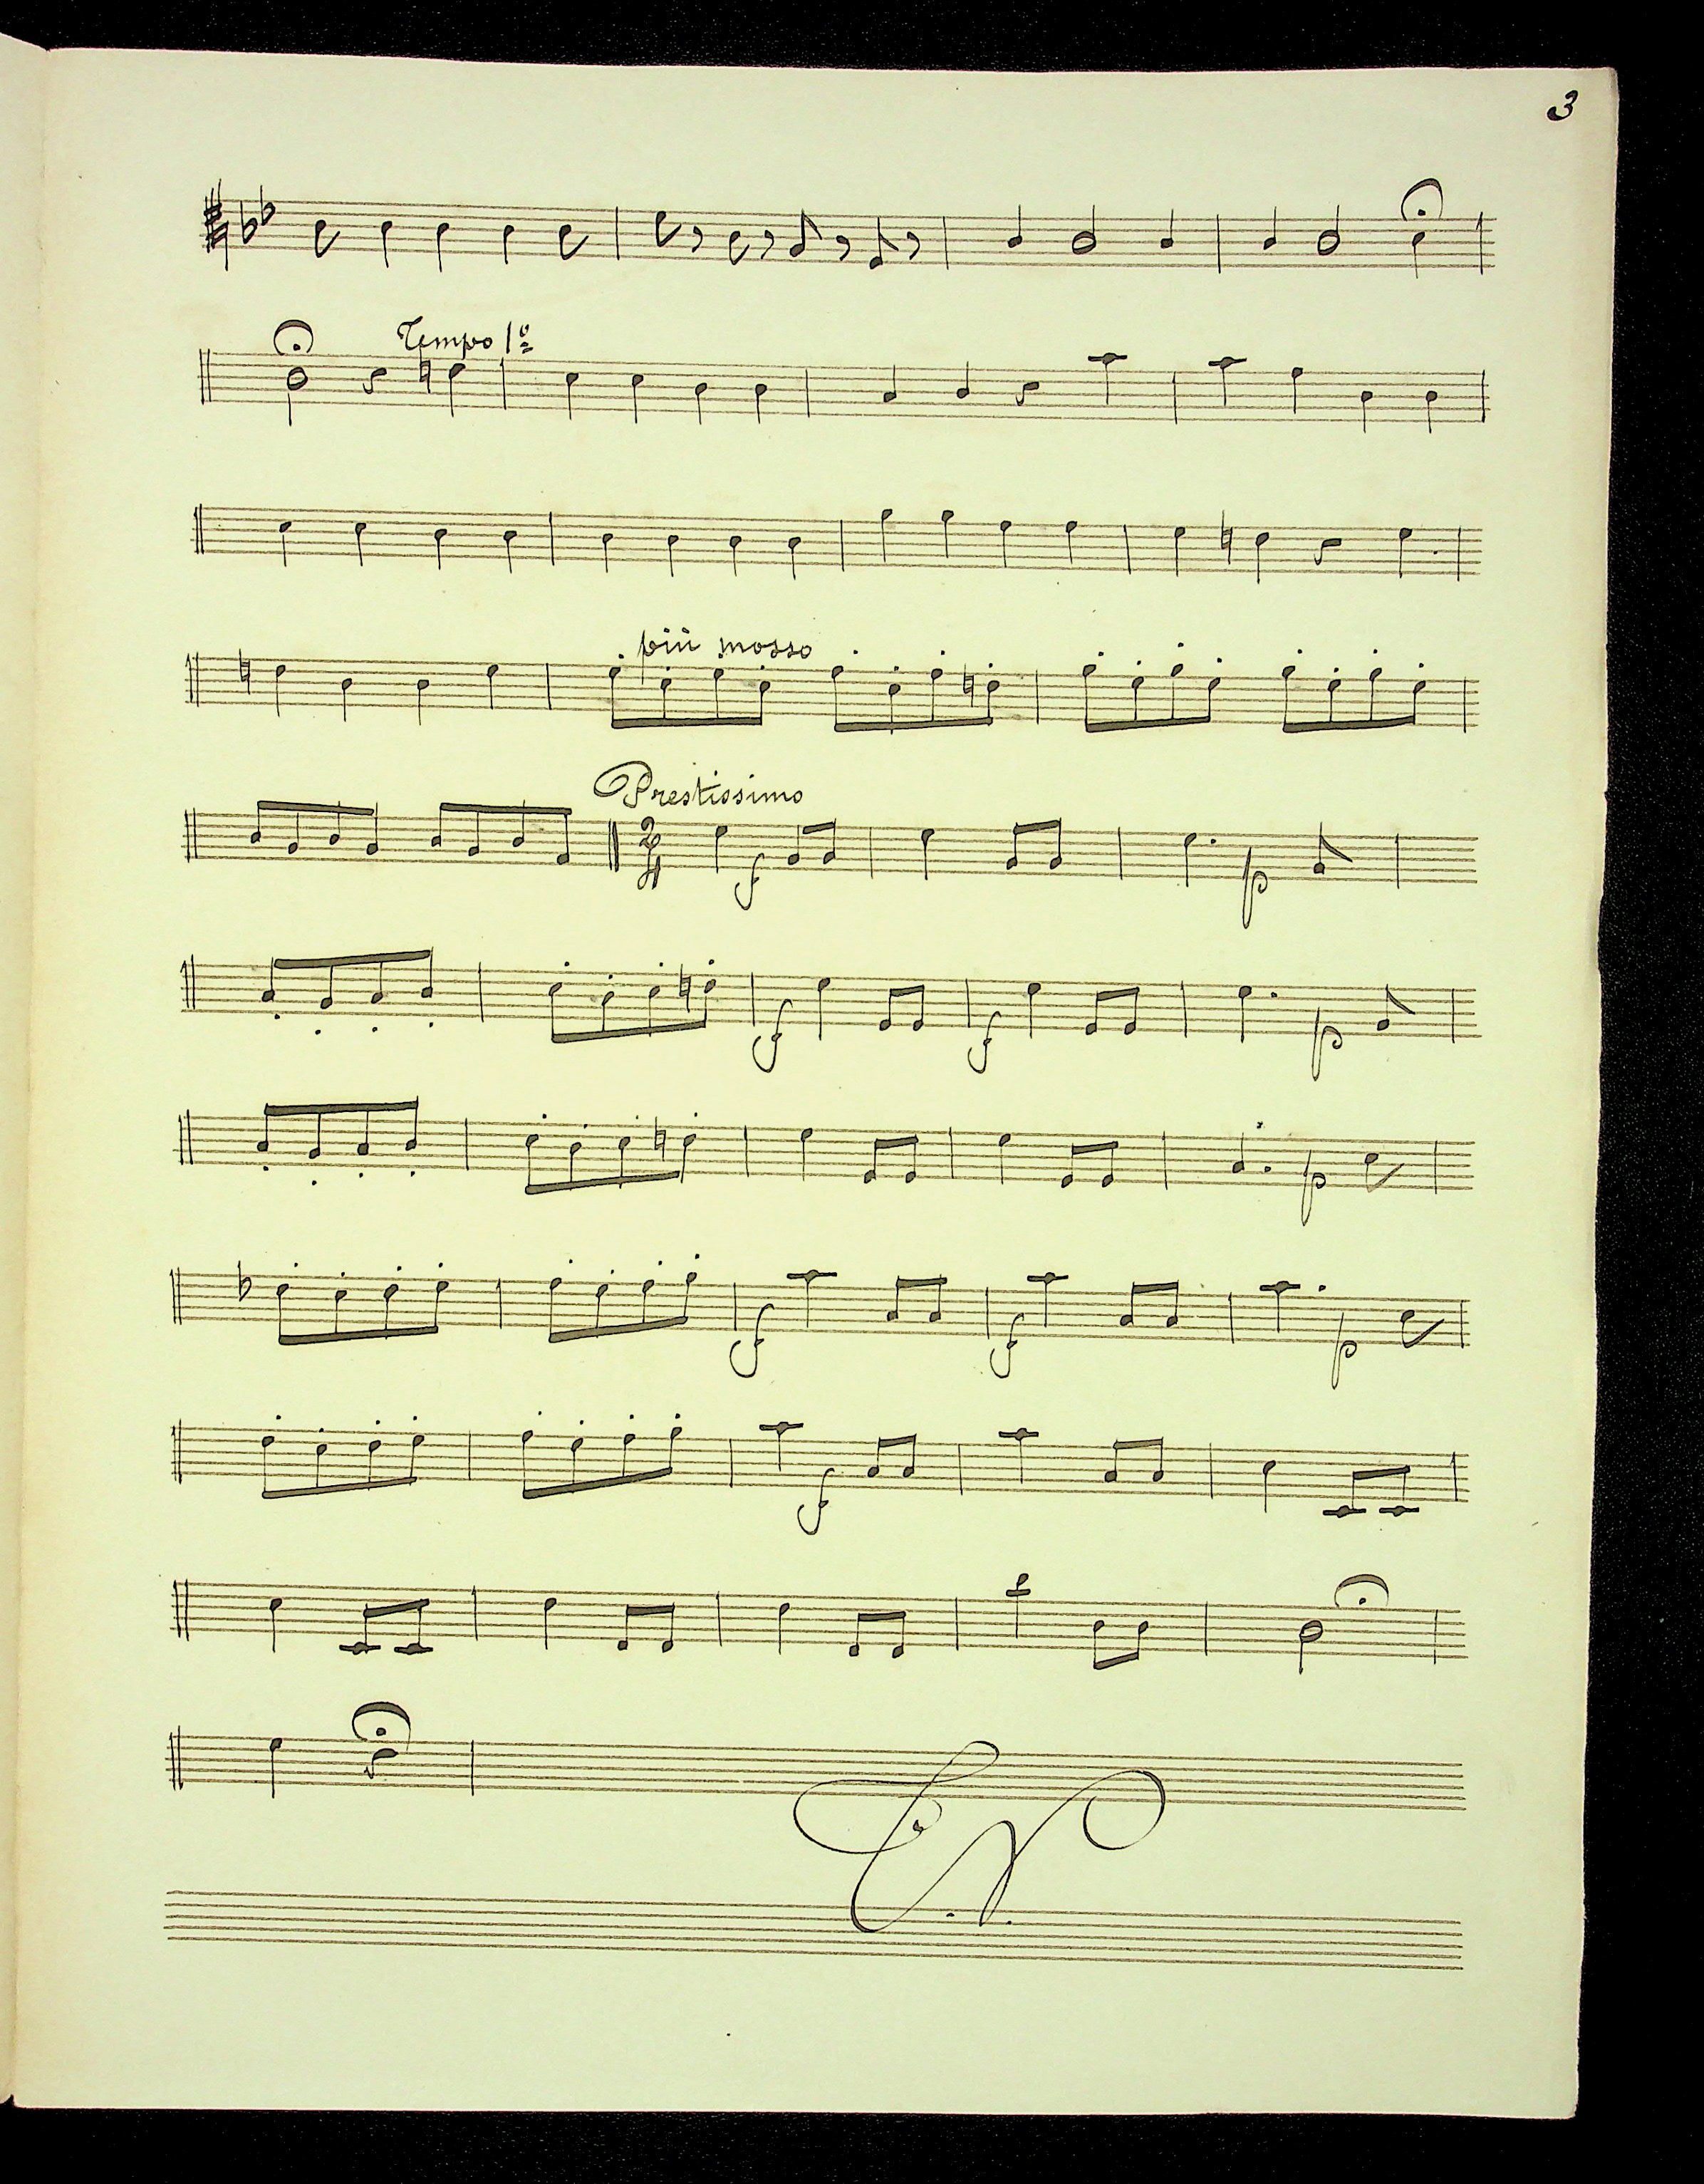 3
Tempo 1º
più mosso
Prestissimo
2/4
f
p
f
f
p
p
f
f
p
f